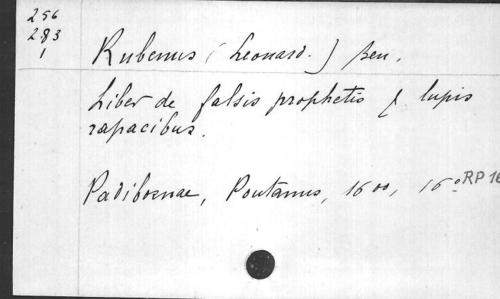 256
283
1
Rubenus (Leonard.) Ben.
Liber de falsis prophetis & lupis
rapacibus.
Padibornae, Pontanus, 1600, 16° RP 16